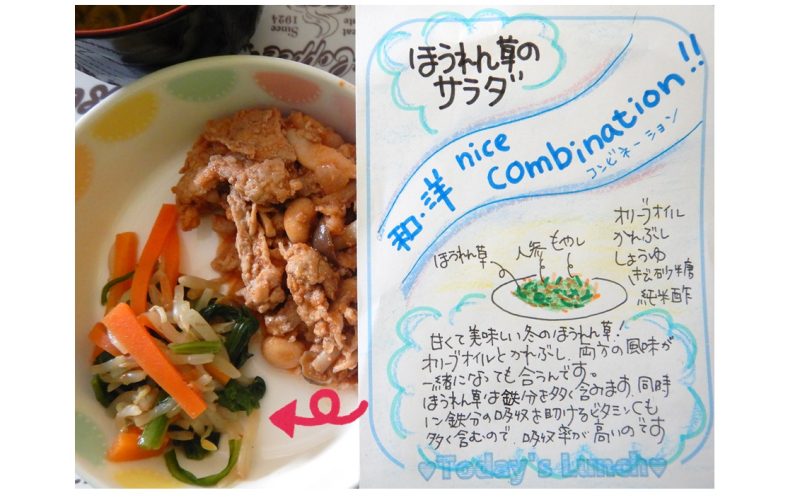 1924
Since
Coffee
ほうれん草の
サラダ
和・洋 nice combination!!
コンビネーション
オリーブオイル
かつぶし
しょうゆ
きび砂糖
純米酢
ほうれん草
人参
もやし
甘くて美味しい冬のほうれん草!
オリーブオイルとかつぶし、両方の風味が
一緒になっても合うんです。
ほうれん草は鉄分を多く含みます。同時
に鉄分の吸収を助けるビタミンCも
多く含むので、吸収率が高いのです
♥Today's Lunch♥